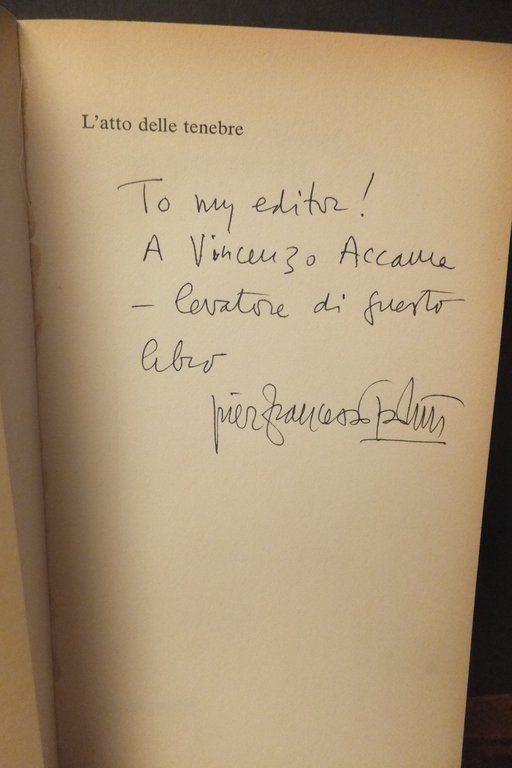 L'atto delle tenebre
To my editor!
A Vincenzo Accame
– levatore di questo
libro
pierfrancesco Paolini